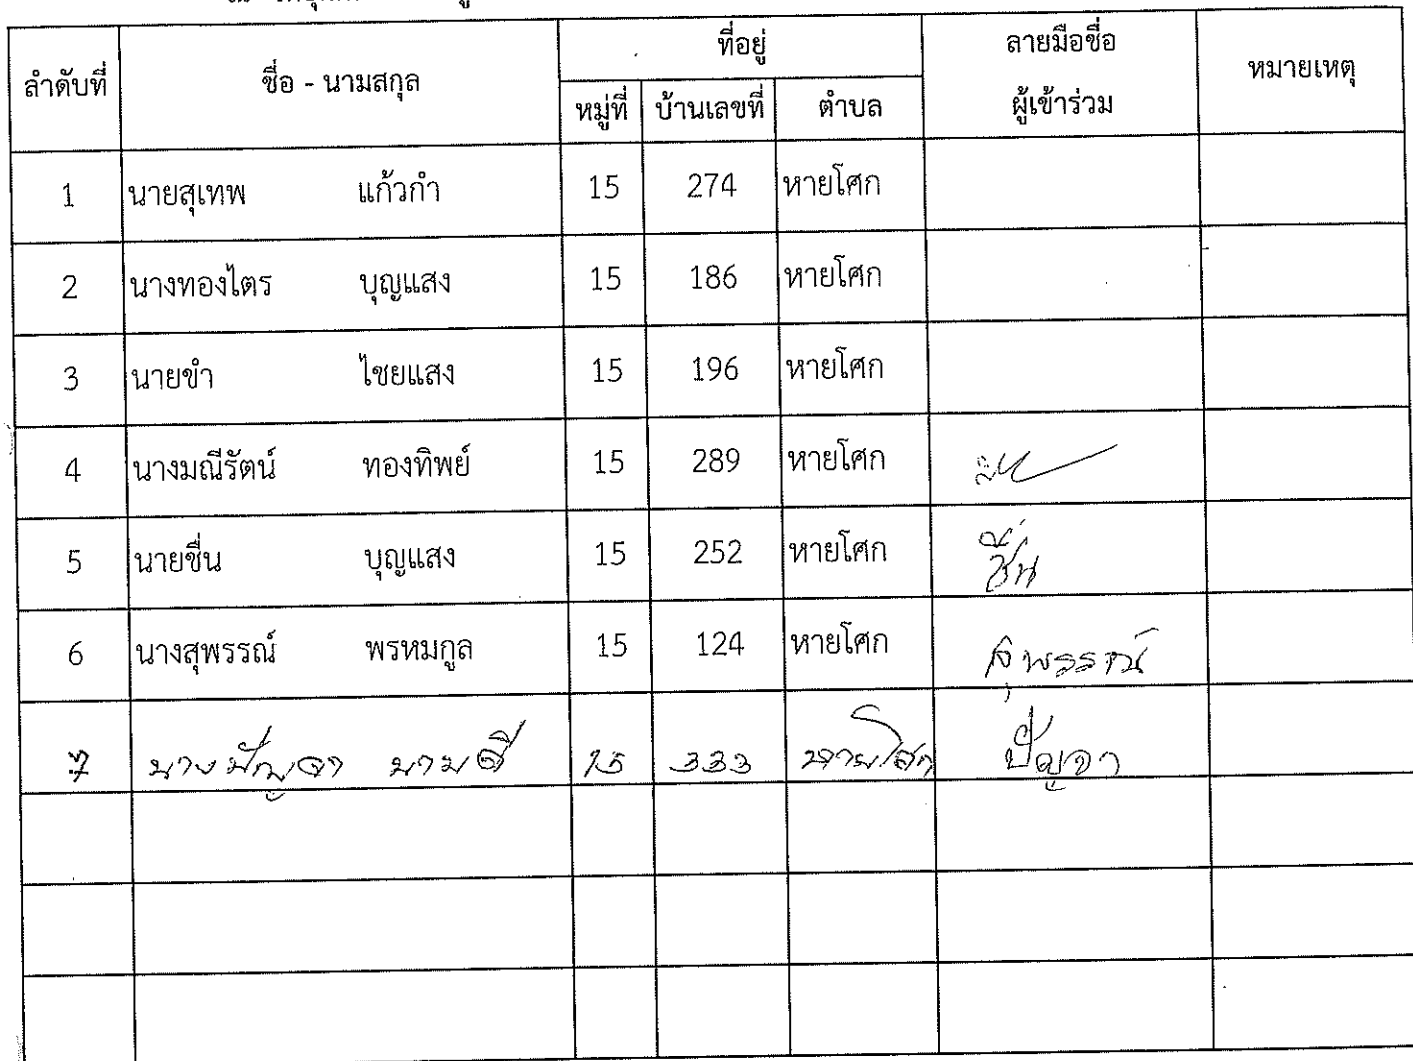 ลำดับที่ ชื่อ - นามสกุล ที่อยู่ ลายมือชื่อ ผู้เข้าร่วม หมายเหตุ
หมู่ที่ บ้านเลขที่ ตำบล
1 นายสุเทพ แก้วกำ 15 274 หายโศก
2 นางทองไตร บุญแสง 15 186 หายโศก
3 นายขำ ไชยแสง 15 196 หายโศก
4 นางมณีรัตน์ ทองทิพย์ 15 289 หายโศก
5 นายชื่น บุญแสง 15 252 หายโศก ชื่น
6 นางสุพรรณ์ พรหมกูล 15 124 หายโศก สุพรรณ์
7 นางปัญจา นามดี 15 333 หายโศก ปัญจา